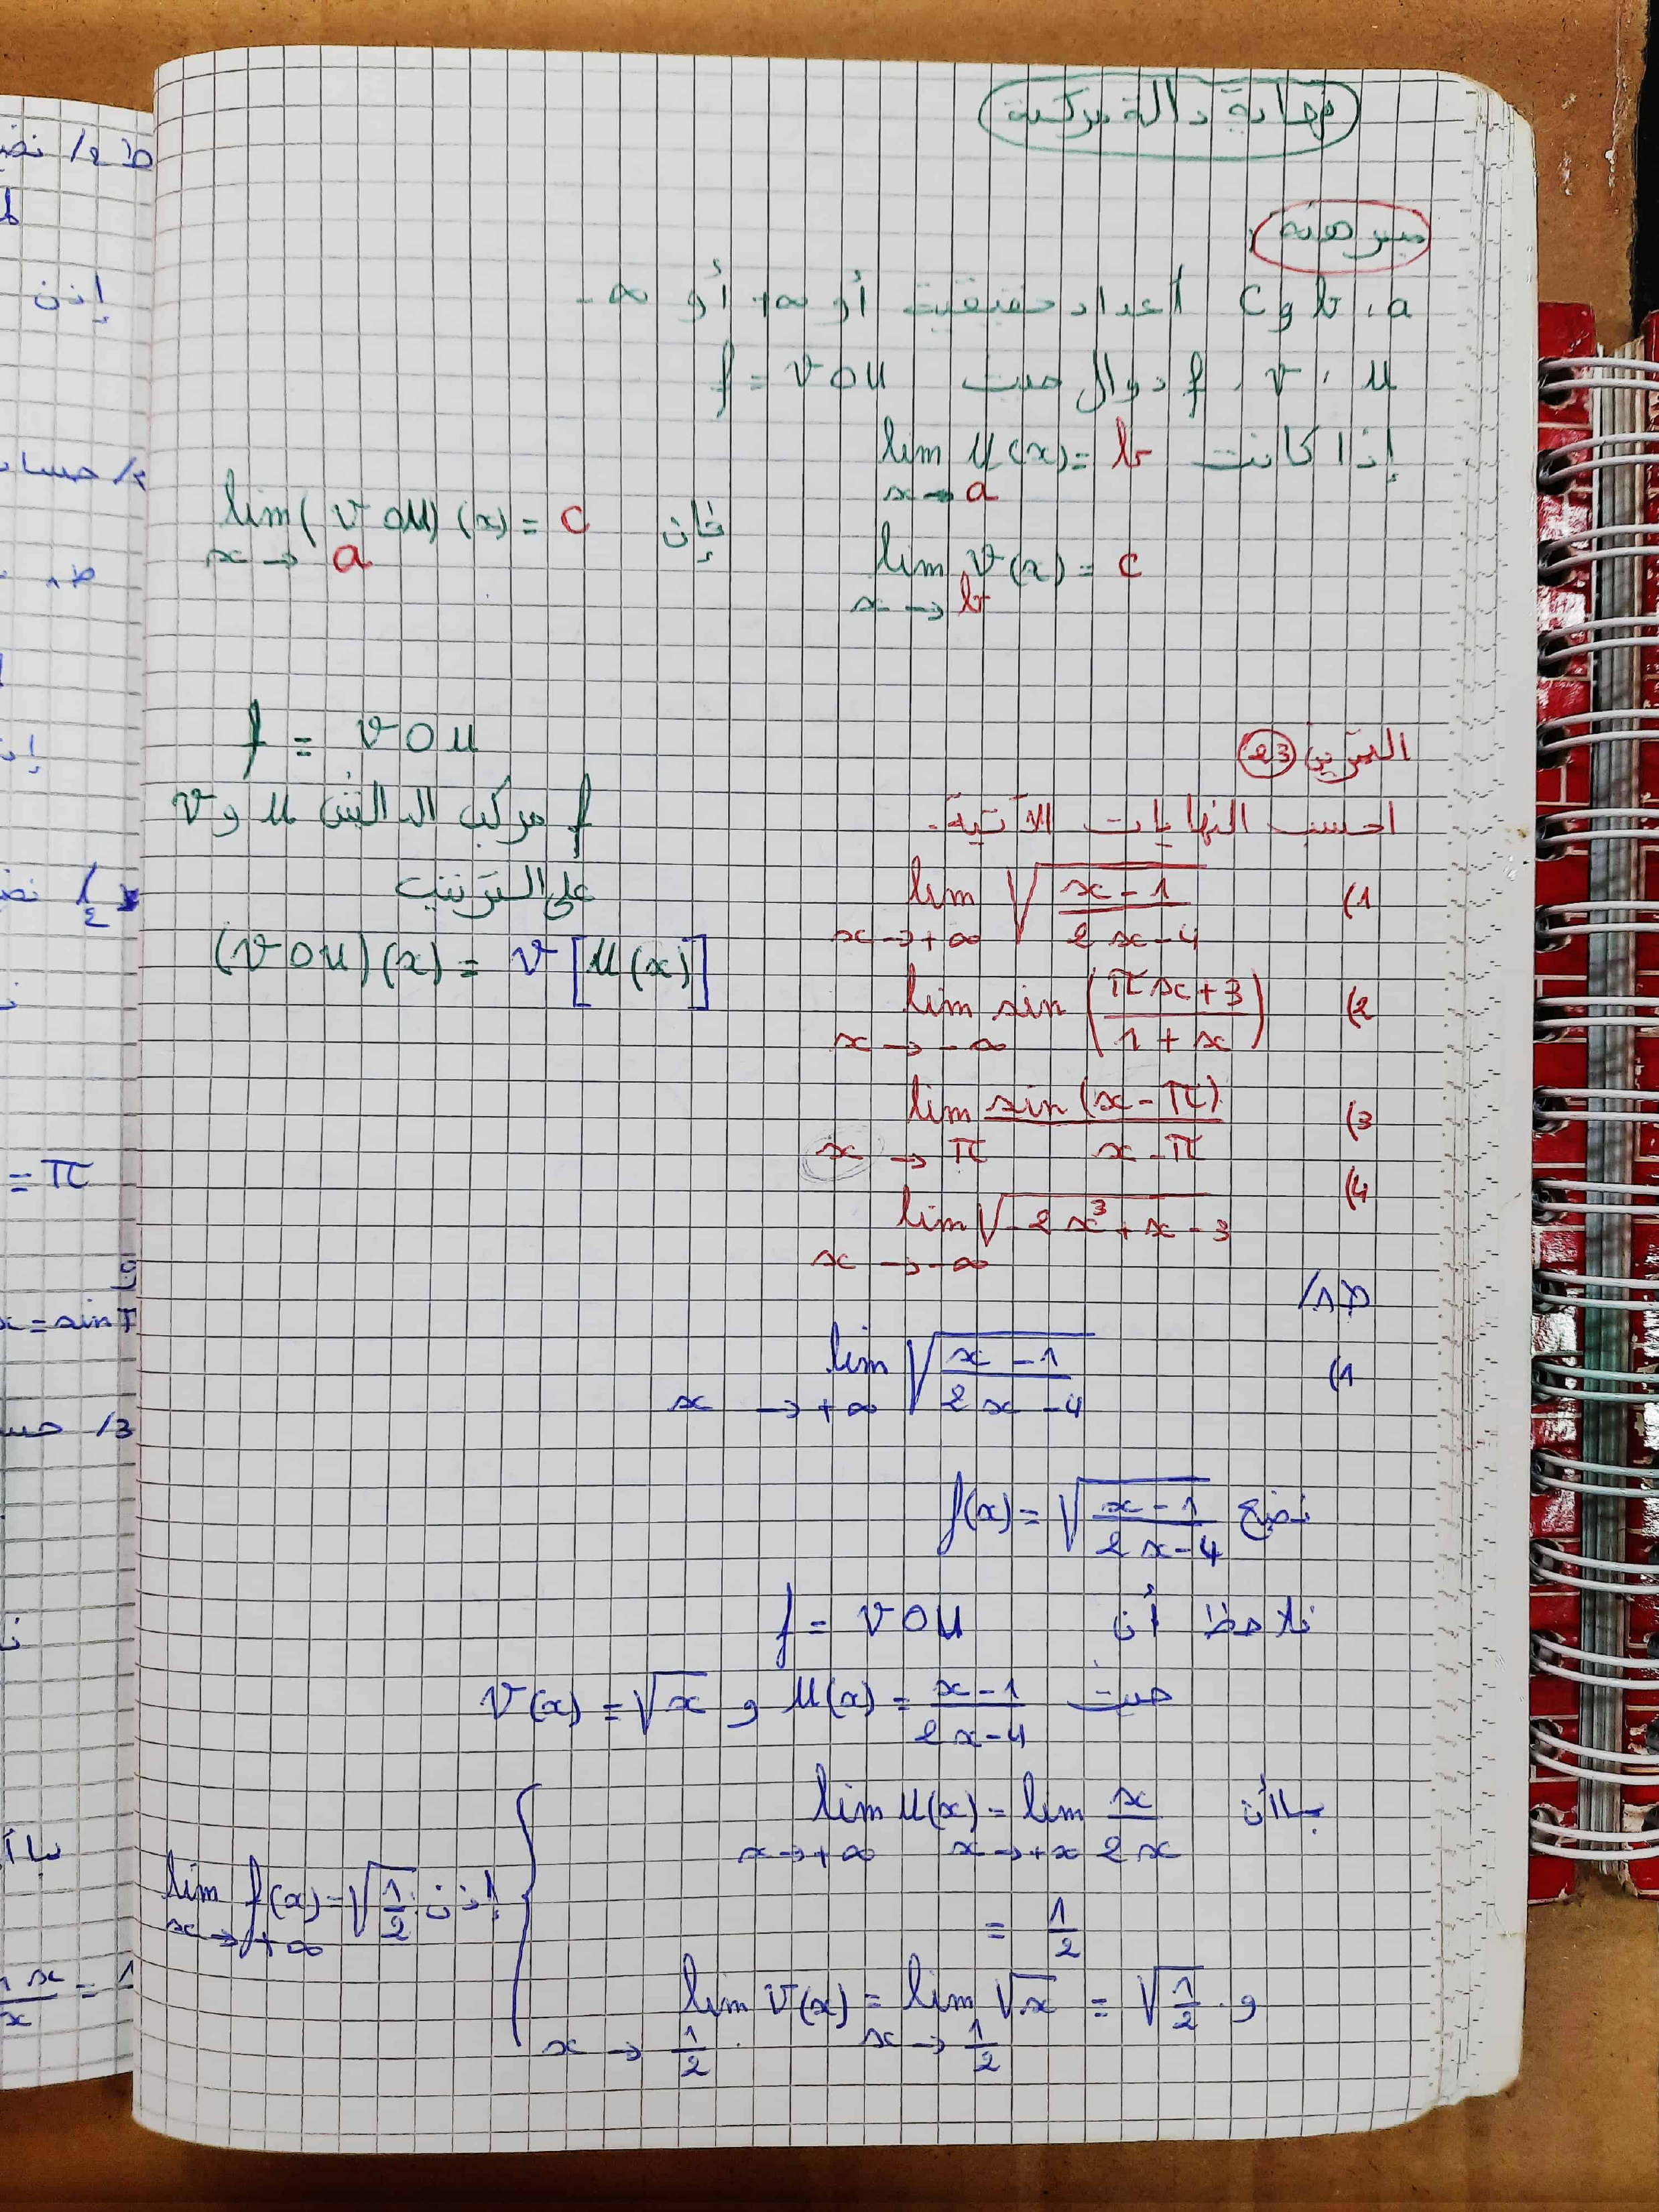 نهاية دالة مركبة
مبرهنة
a، b و c أعداد حقيقية أو +∞ أو -∞
u، v، f دوال حيث f = v o u
إذا كانت lim u(x) = b
x → a
lim v(x) = c
x → b
فإن lim (v o u)(x) = c
x → a
f = v o u
f مركب الدالتين u و v
على الترتيب
(v o u)(x) = v[u(x)]
التمرين 23
احسب النهايات الآتية.
1) lim √((x-1)/(2x-4))
x → +∞
2) lim sin((πx+3)/(1+x))
x → -∞
3) lim sin(x-π)/(x-π)
x → π
4) lim √(-2x³+x-3)
x → -∞
ط1/
1) lim √((x-1)/(2x-4))
x → +∞
نضع f(x) = √((x-1)/(2x-4))
نلاحظ أن f = v o u
حيث u(x) = (x-1)/(2x-4) و v(x) = √x
بما أن lim u(x) = lim x/2x
x → +∞ x → +∞
= 1/2
و lim v(x) = lim √x = √(1/2)
x → 1/2 x → 1/2
إذن lim f(x) = √(1/2)
x → +∞
نضع
إذن
= π
x = sin π
/3
x/x = 1